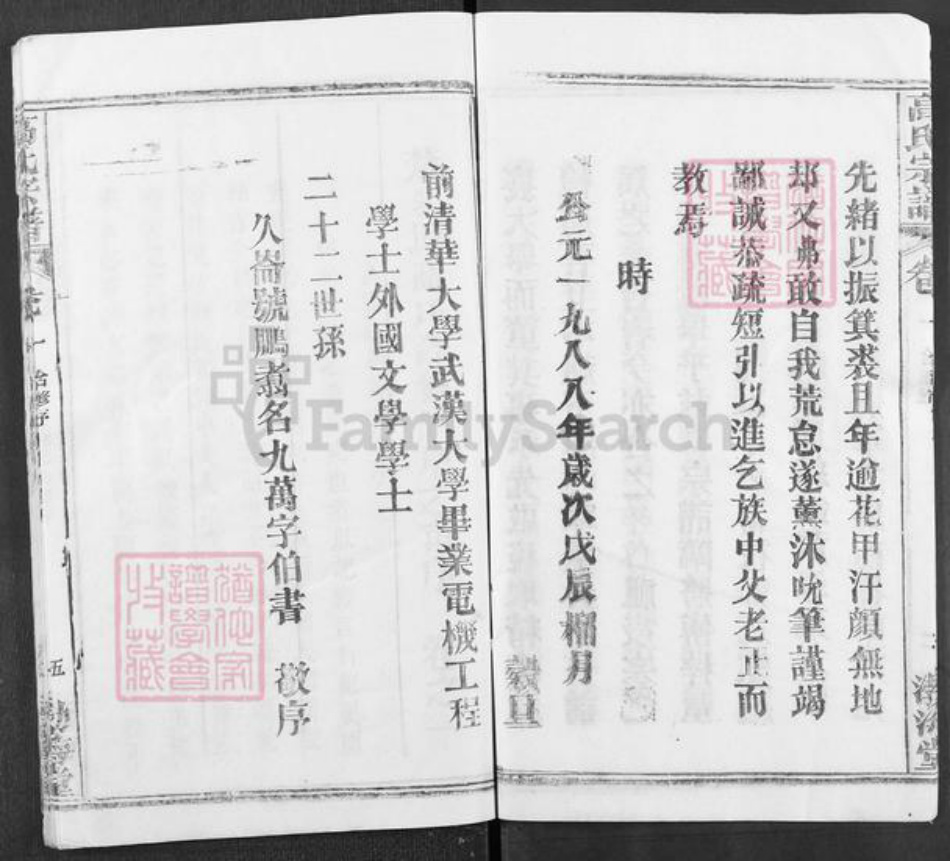 高氏宗譜
卷一
渤海堂
先緒以振箕裘且年逾花甲汗顏無地
却又弗敢自我荒怠遂薰沐吮筆謹竭
鄙誠恭疏短引以進乞族中父老正而
教焉
時
公元一九八八年歲次戊辰榴月
穀旦
前清華大學武漢大學畢業電機工程
學士外國文學學士
二十二世孫
久崙號鵬翥名九萬字伯書 敬序
卷一
合修序
五
猶他家
譜學會
收藏
FamilySearch